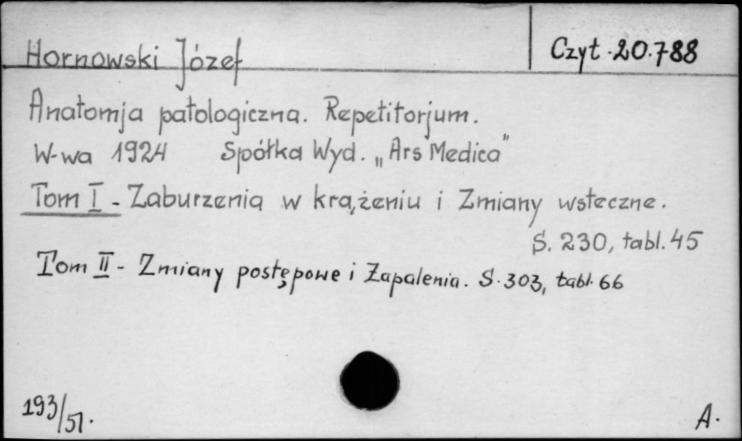 Hornowski Józef
Czyt. 20.788
Anatomja patologiczna. Repetitorjum.
W-wa 1924 Spółka Wyd. „Ars Medica"
Tom I - Zaburzenia w krążeniu i Zmiany wsteczne.
S. 230, tabl. 45
Tom II - Zmiany postępowe i Zapalenia. S. 303, tabl. 66
193/51.
A.